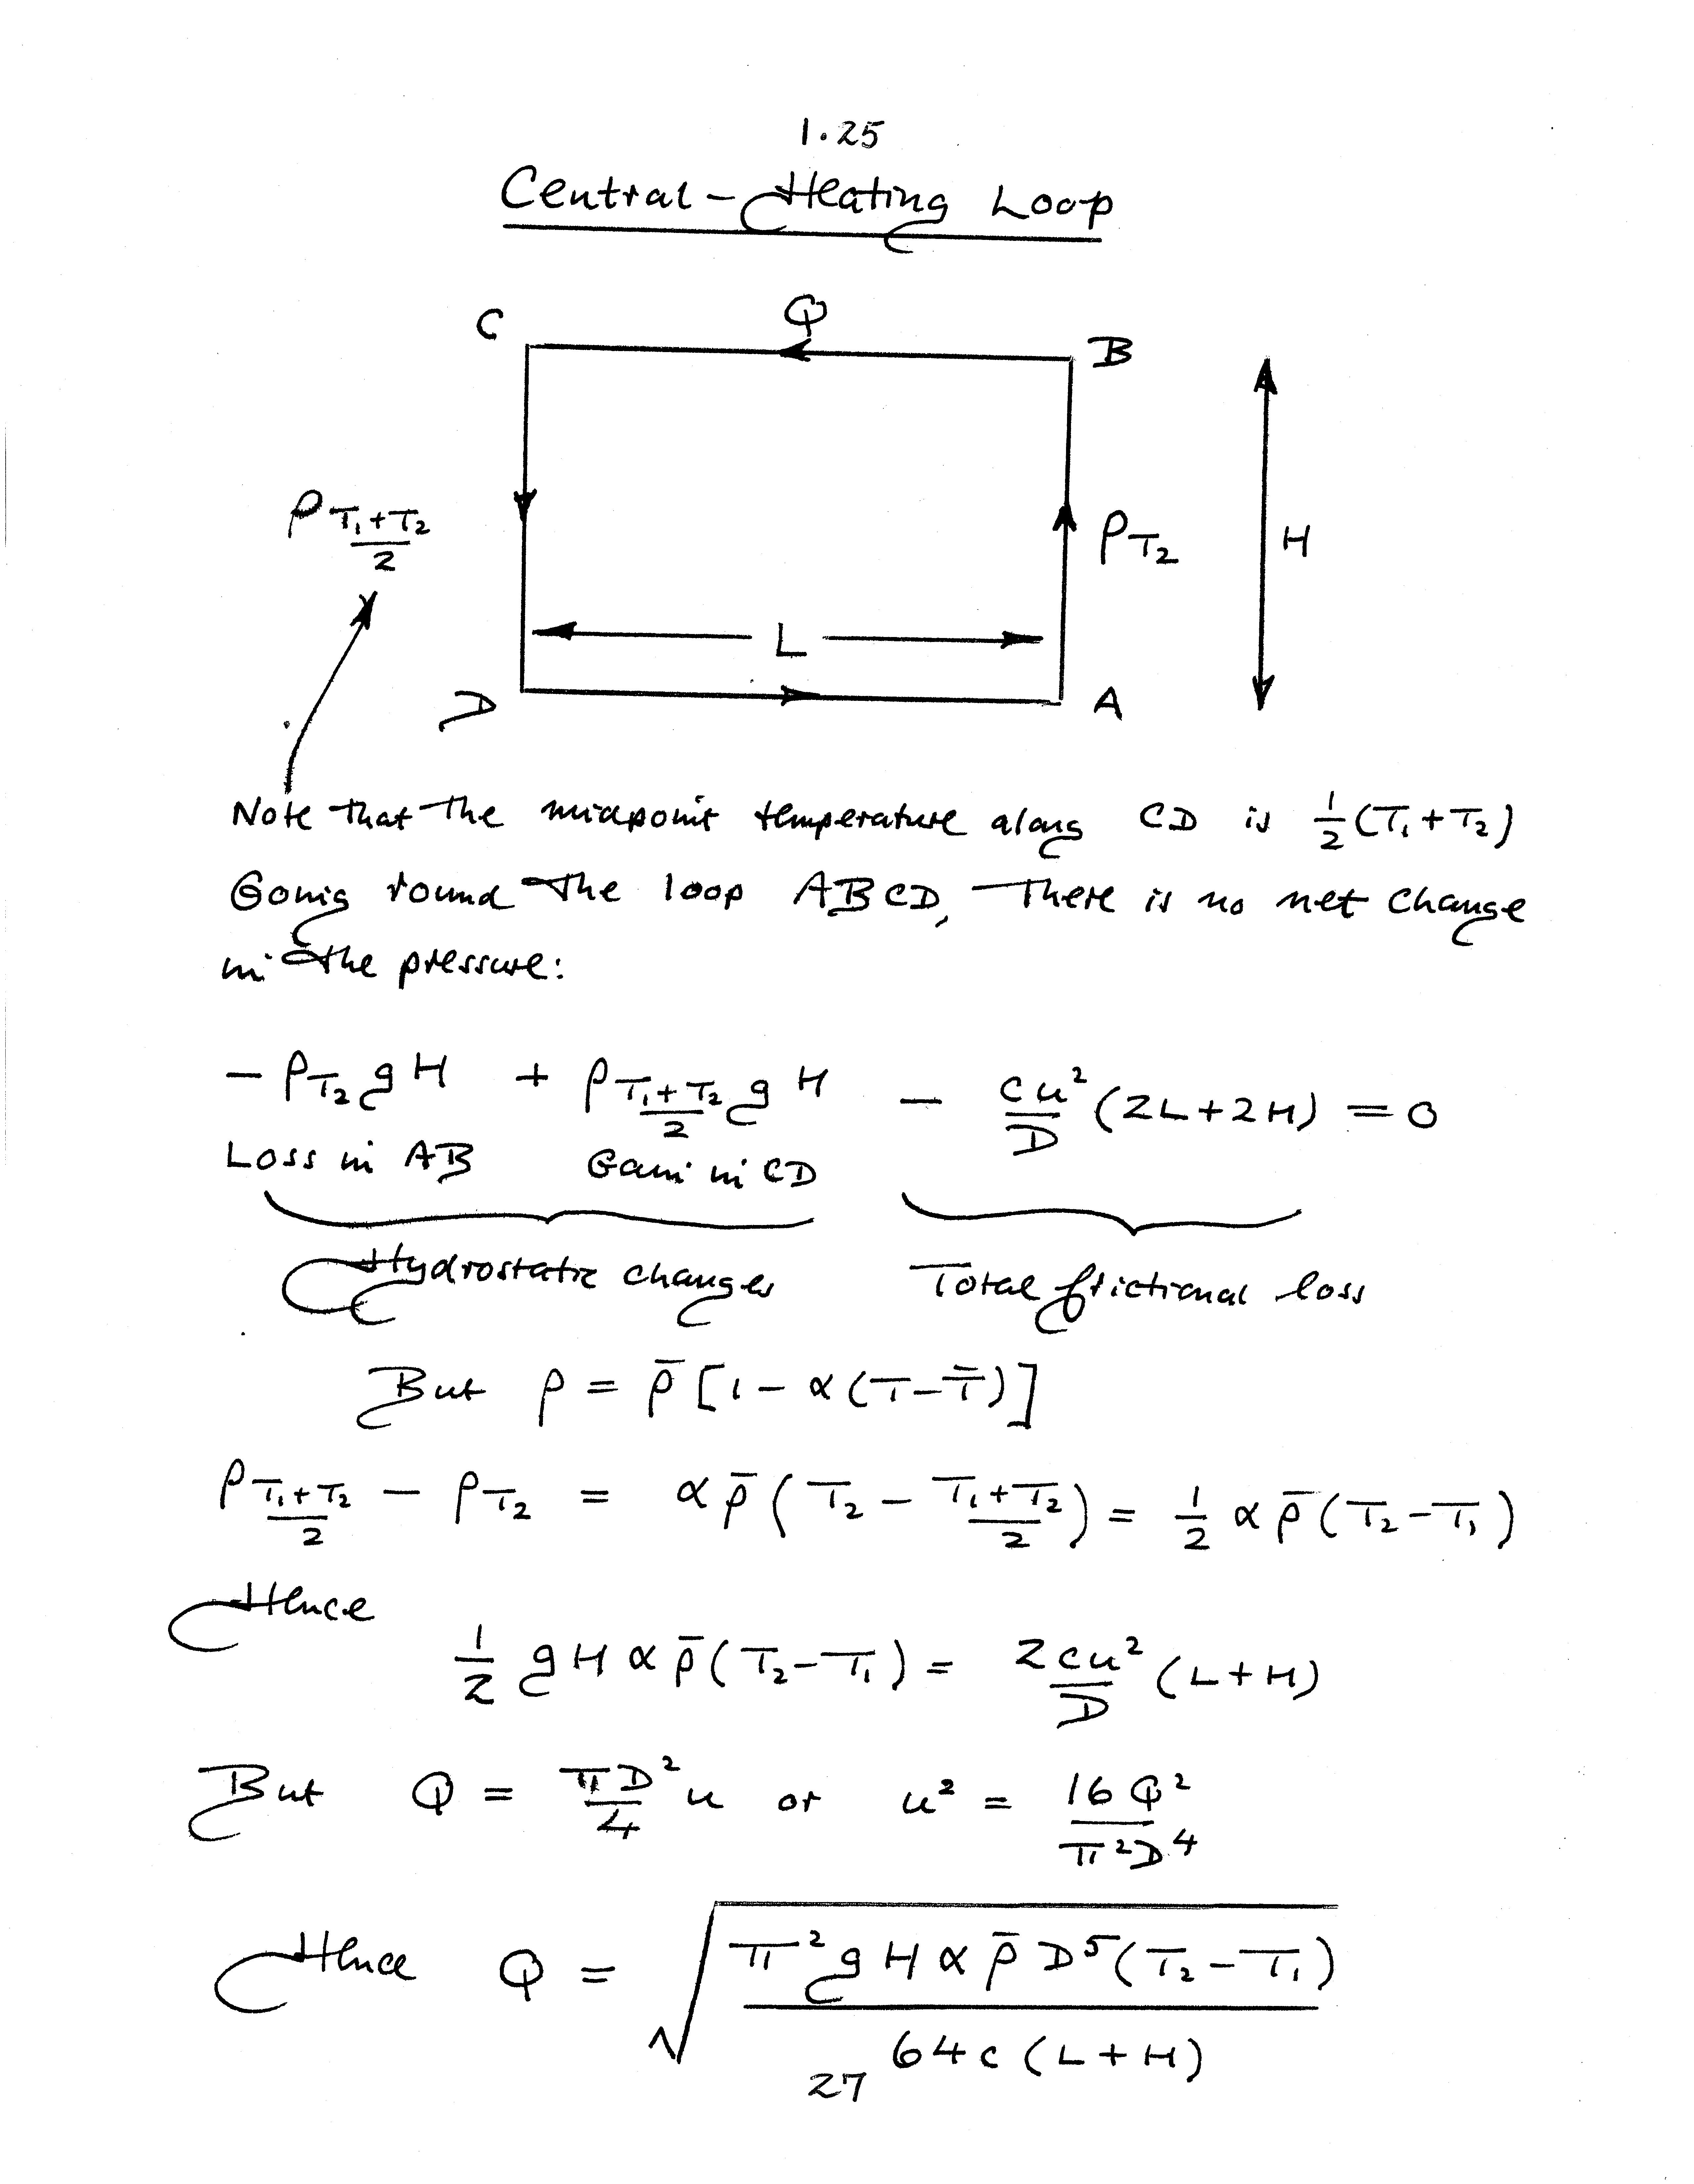 1.25
Central-Heating Loop
C Q B
ρ_{(T₁+T₂)/2} ρ_{T₂} H
L
D A
Note that the midpoint temperature along CD is ½(T₁+T₂)
Going round the loop ABCD, there is no net change
in the pressure:
− ρ_{T₂} g H + ρ_{(T₁+T₂)/2} g H − cu²/D (2L+2H) = 0
Loss in AB Gain in CD
Hydrostatic changes Total frictional loss
But ρ = ρ̄ [1 − α(T−T̄)]
ρ_{(T₁+T₂)/2} − ρ_{T₂} = αρ̄ (T₂ − (T₁+T₂)/2) = ½ αρ̄(T₂−T₁)
Hence
½ gHαρ̄(T₂−T₁) = 2cu²/D (L+H)
But Q = πD²/4 u or u² = 16Q²/π²D⁴
Hence Q = √(π²gHαρ̄D⁵(T₂−T₁) / 64c(L+H))
27